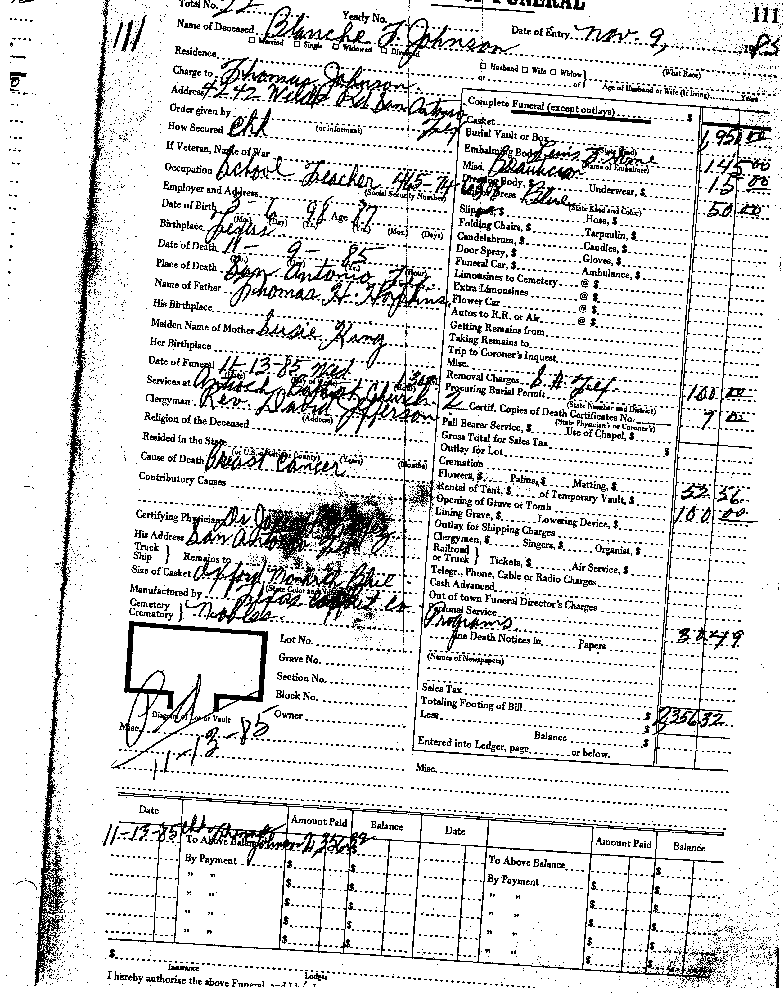 OF FUNERAL
111
Total No. 22 Yearly No.
111
Name of Deceased Blanche F. Johnson Date of Entry Nov. 9, 1985
Married Single Widowed Divorced
Residence
Husband Wife Widow (What Race)
or or Age of Husband or Wife (if living) Years
Charge to Thomas Johnson
Address 4242 San Antonio
Order given by Tex
How Secured Chk (or Informant)
If Veteran, Name of War
Occupation School Teacher 465-74
(Social Security Number)
Employer and Address
Date of Birth 3- 98 Age 87
(Mo.) (Day) (Yr.) (Yrs.) (Mos.) (Days)
Birthplace Texas
Date of Death 11- 9 - 85
Place of Death San Antonio Tex. (Hour)
Name of Father Thomas H. Hopkins
His Birthplace
Maiden Name of Mother Susie King
Her Birthplace
Date of Funeral 11-13-85 Wed
Services at Antioch Baptist Church
Clergyman Rev. David Jefferson
(Address)
Religion of the Deceased
Resided in the State
(or U.S. or City or County) (Years) (Months)
Cause of Death Breast Cancer
Contributory Causes
Certifying Physician Dr
His Address San Antonio Tex
Truck Ship } Remains to
Size of Casket Oxford Blue
(State Color and)
Manufactured by Texas Co
Cemetery Crematory }
Lot No.
Grave No.
Section No.
Block No.
Owner
Diagram of Lot or Vault
Misc.
Pd
11-13-85
Complete Funeral (except outlays) $
Casket 1,950 00
Burial Vault or Box
(State Kind)
Embalming Body Lewis
(Name of Embalmer)
Misc. Beautician 145 00
Dressing Body, $ Underwear, $ 15 00
Dress Blue 50 00
(State Kind and Color)
Slippers, $ Hose, $
Folding Chairs, $ Tarpaulin, $
Candelabrum, $ Candles, $
Door Spray, $ Gloves, $
Funeral Car, $ Ambulance, $
Limousines to Cemetery @ $
Extra Limousines @ $
Flower Car @ $
Autos to R.R. or Air @ $
Getting Remains from
Taking Remains to
Trip to Coroner's Inquest
Misc.
Removal Charges S. A. Tex 100 00
Procuring Burial Permit
(State Number and District)
2 Certif. Copies of Death Certificates No. 9 00
(State Physician's or Coroner's)
Pall Bearer Service, $ Use of Chapel, $
Gross Total for Sales Tax $
Outlay for Lot
Cremation
Flowers, $ Palms, $ Matting, $
Rental of Tent, $ of Temporary Vault, $ 52 56
Opening of Grave or Tomb 100 00
Lining Grave, $ Lowering Device, $
Outlay for Shipping Charges
Clergymen, $ Singers, $ Organist, $
Railroad or Truck } Tickets, $ Air Service, $
Telegr., Phone, Cable or Radio Charges
Cash Advanced
Out of town Funeral Director's Charges
Personal Service
Programs
Line Death Notices in Papers
(Names of Newspapers)
Sales Tax
Totaling Footing of Bill $ 2356 32
Less $
Balance $
Entered into Ledger, page or below.
Misc.
Date Amount Paid Balance Date Amount Paid Balance
11-13-85 Chk Thomas
To Above Balance To Above Balance $
By Payment $ By Payment $
" " $ " " $
" " $ " " $
" " $ " " $
" " $ " " $
$
Insurance Lodges
I hereby authorize the above Funeral